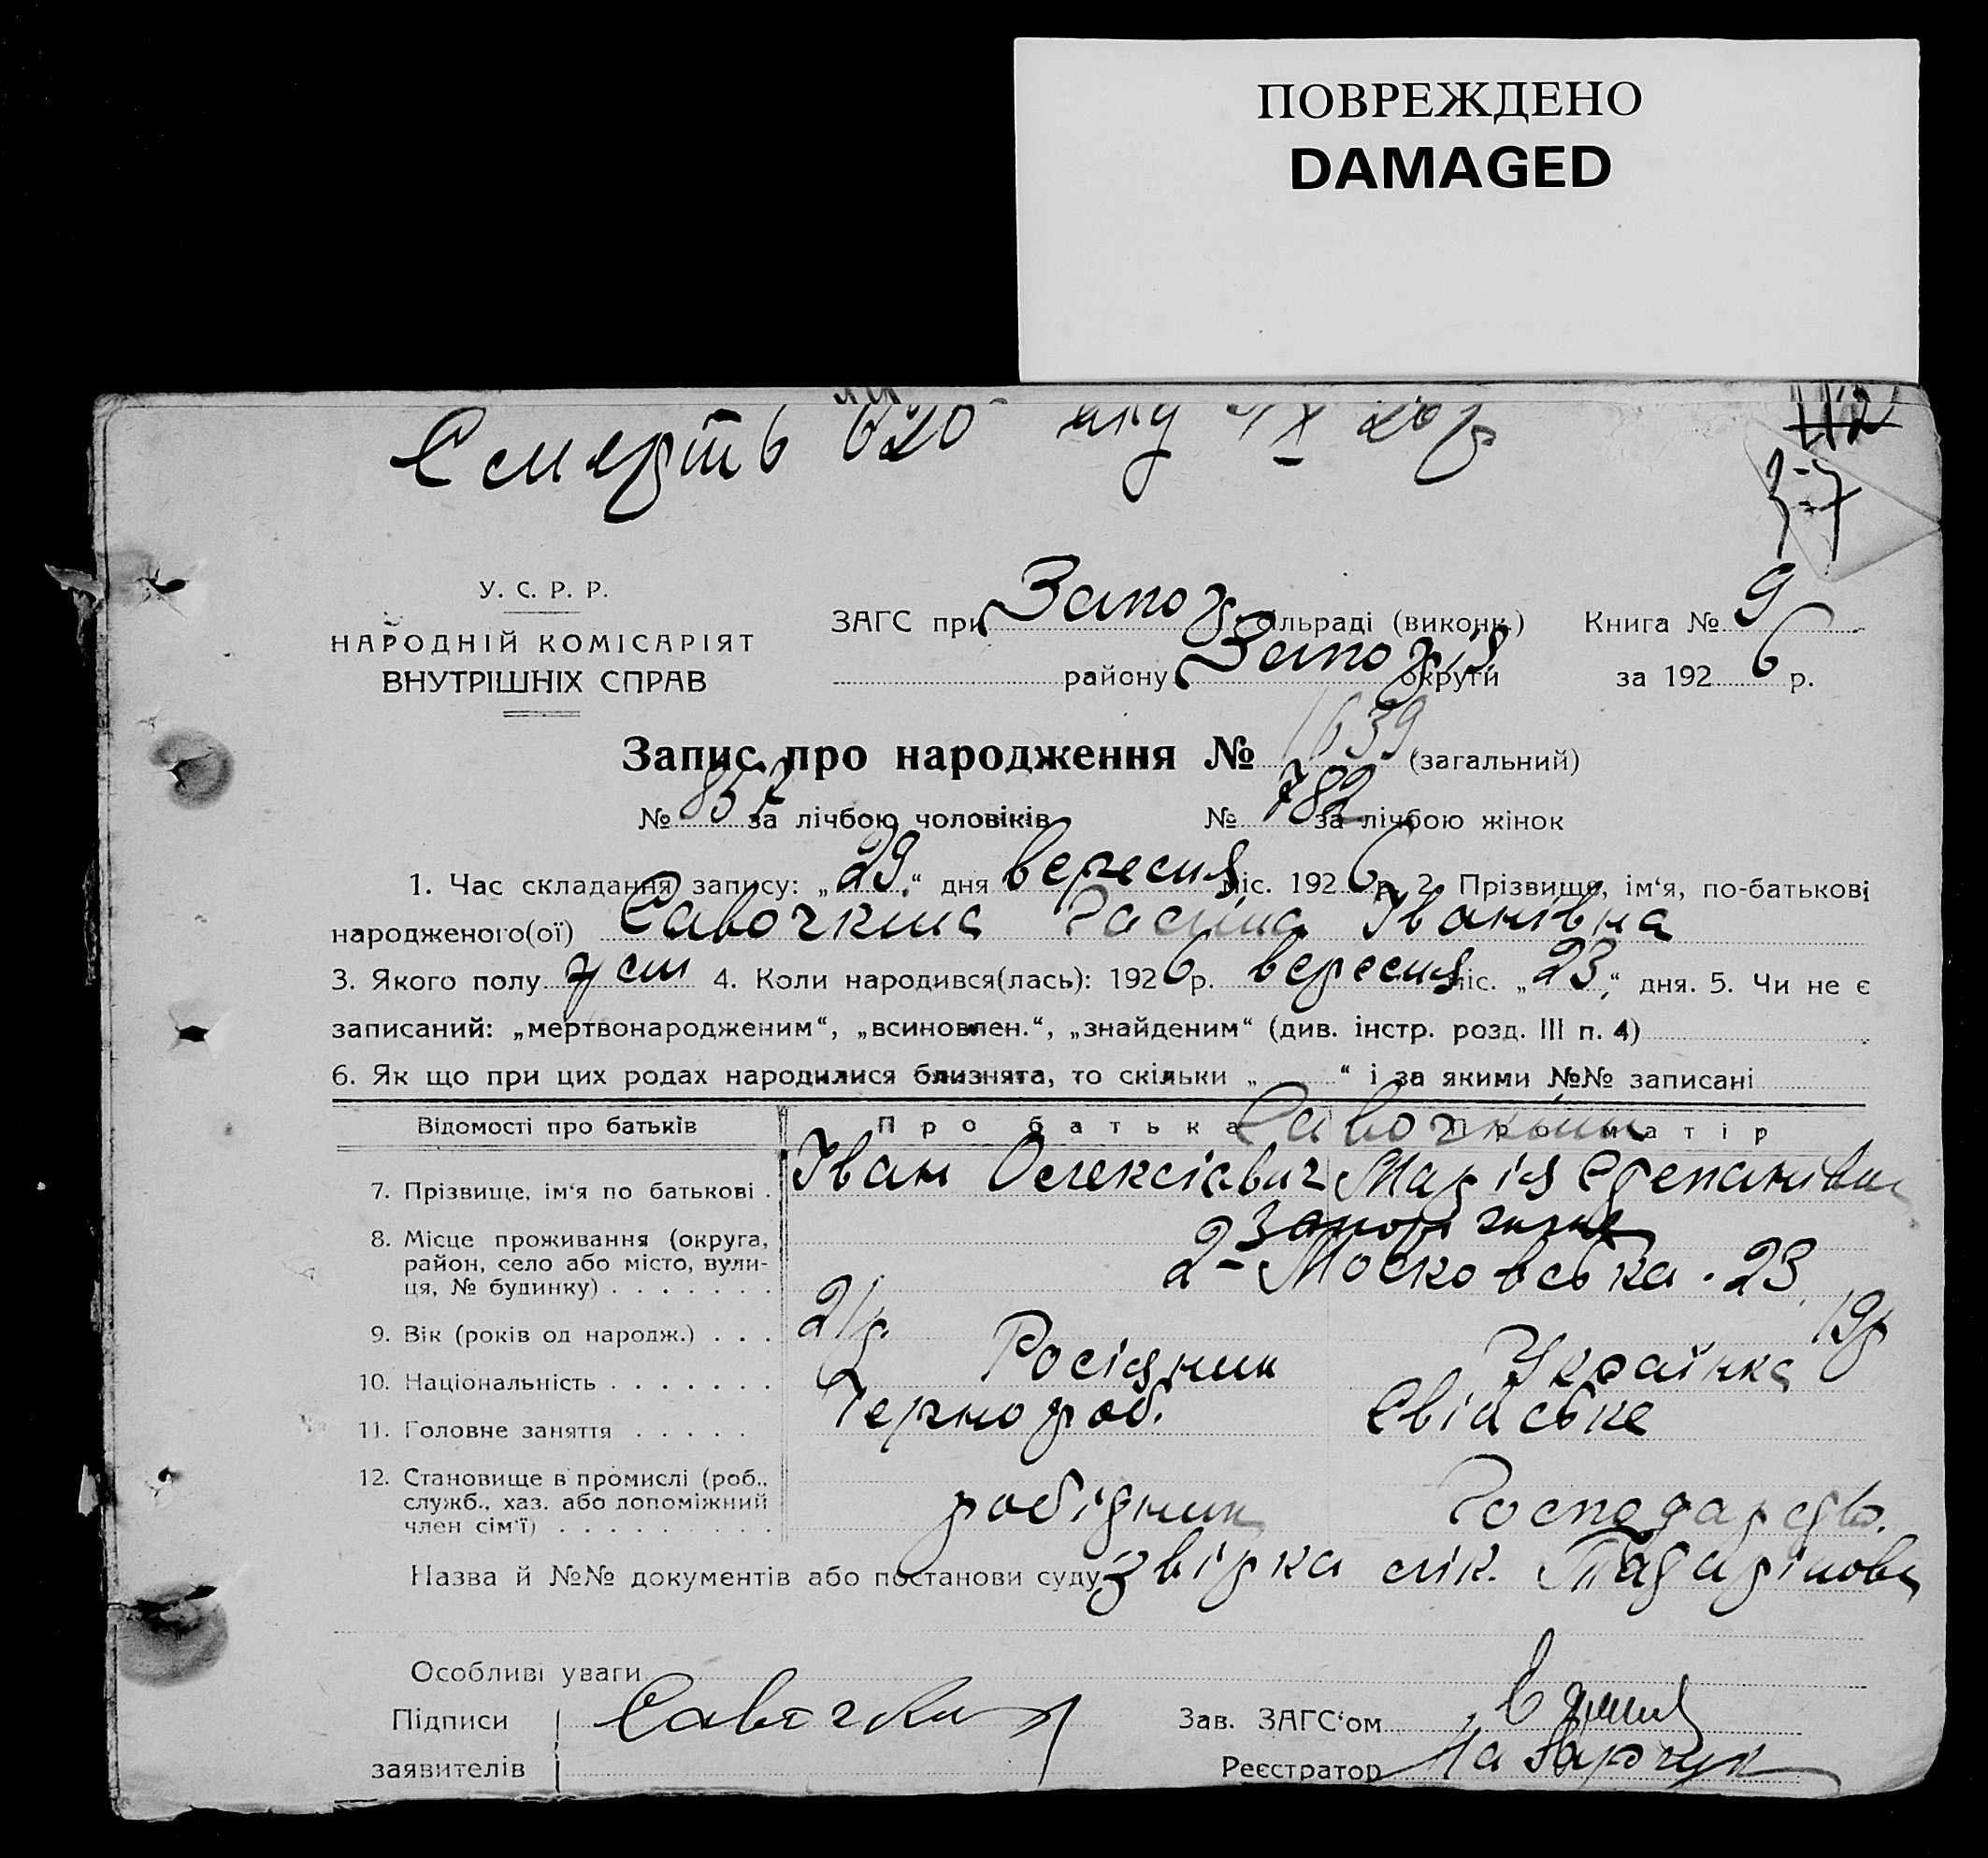 ПОВРЕЖДЕНО
DAMAGED
Смерть 620
У. С. Р. Р.
НАРОДНІЙ КОМІСАРІЯТ
ВНУТРІШНІХ СПРАВ
ЗАГС при Запоз. сільраді (виконк.) Книга № 9
району Запоз округи за 192 6 р.
Запис про народження № 1639 (загальний)
№ 857 за лічбою чоловіків № 782 за лічбою жінок
1. Час складання запису: „ 29 “ дня вересня міс. 192 6 р. 2. Прізвище, ім‘я, по-батькові
народженого(ої) Савочкина Іванівна
3. Якого полу жін 4. Коли народився(лась): 192 6 р. вересня міс. „ 23 “ дня. 5. Чи не є
записаний: „мертвонародженим“, „всиновлен.“, „знайденим“ (див. інстр. розд. III п. 4)
6. Як що при цих родах народилися близнята, то скільки „ “ і за якими №№ записані
Відомості про батьків Про батька Про матір
Савочкини
7. Прізвище, ім‘я по батькові . Іван Олексієвич Марія Степанівна
8. Місце проживання (округа, район, село або місто, вулиця, № будинку) . . . . . . .
2-Московська . 23
9. Вік (років од народж.) . . . 21р. 19р
10. Національність . . . . . . . Росіянин Українка
11. Головне заняття . . . . . Чернороб. Свійське
12. Становище в промислі (роб., служб., хаз. або допоміжний член сім‘ї) . . . . . . . . . робідник Господарств.
Назва й №№ документів або постанови суду звірка лік.
Особливі уваги
Підписи Савочкин Зав. ЗАГС‘ом
заявителів Реєстратор